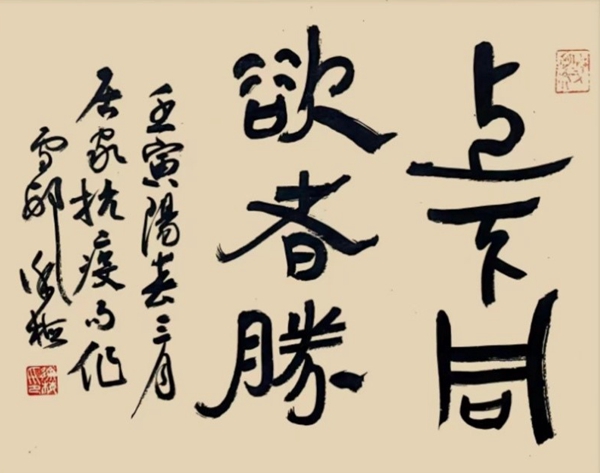 上下同
欲者勝
壬寅陽春三月
居家抗疫作
雪邨